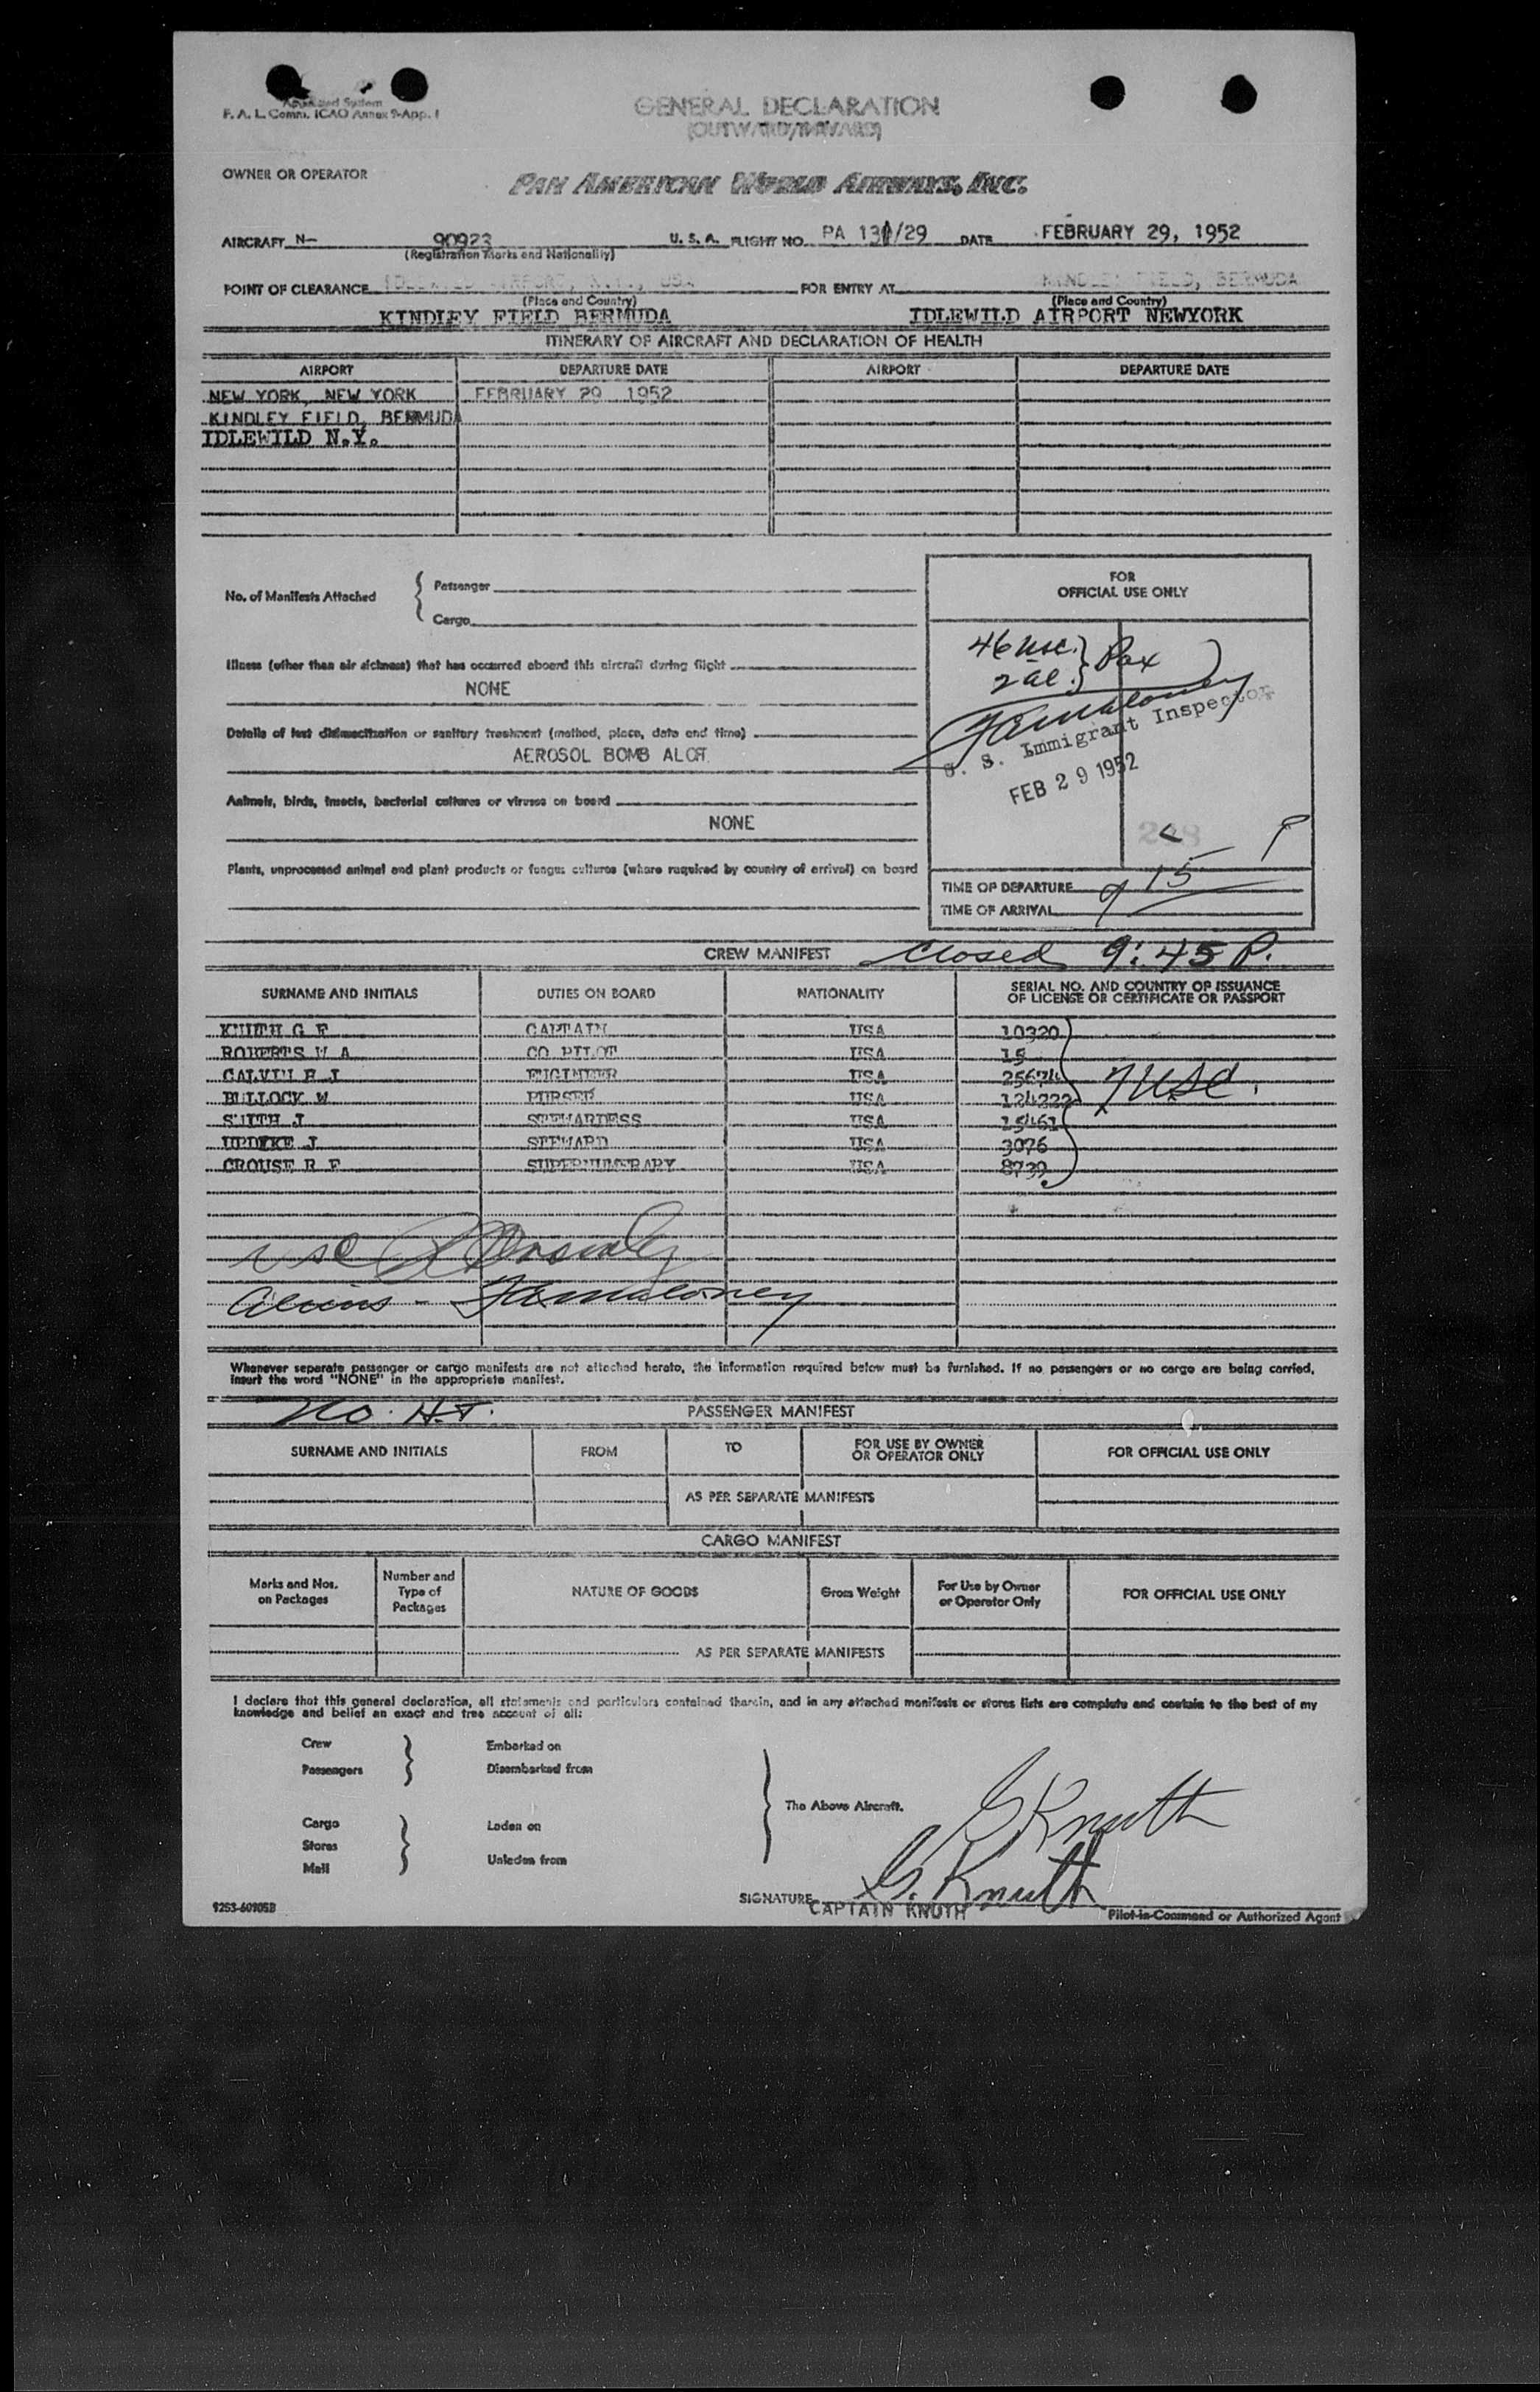 F. A. L. Comm. ICAO Annex 9-App. 1
GENERAL DECLARATION
(OUTWARD/INWARD)
OWNER OR OPERATOR
PAN AMERICAN WORLD AIRWAYS, INC.
AIRCRAFT N- 90923 U. S. A. FLIGHT NO. PA 131/29 DATE FEBRUARY 29, 1952
(Registration Marks and Nationality)
POINT OF CLEARANCE IDLEWILD AIRPORT, N.Y., USA FOR ENTRY AT KINDLEY FIELD, BERMUDA
(Place and Country) (Place and Country)
KINDLEY FIELD BERMUDA IDLEWILD AIRPORT NEWYORK
ITINERARY OF AIRCRAFT AND DECLARATION OF HEALTH
AIRPORT DEPARTURE DATE AIRPORT DEPARTURE DATE
NEW YORK, NEW YORK FEBRUARY 29 1952
KINDLEY FIELD, BERMUDA
IDLEWILD N.Y.
No. of Manifests Attached { Passenger
Cargo
FOR
OFFICIAL USE ONLY
46 usc. } Pax
2 al. }
FAMaloney
U. S. Immigrant Inspector
FEB 29 1952
Illness (other than air sickness) that has occurred aboard this aircraft during flight
NONE
Details of last disinsectization or sanitary treatment (method, place, date and time)
AEROSOL BOMB ALOFT
Animals, birds, insects, bacterial cultures or viruses on board
NONE
Plants, unprocessed animal and plant products or fungus cultures (where required by country of arrival) on board
TIME OF DEPARTURE
TIME OF ARRIVAL 9 15 P
CREW MANIFEST Closed 9:45 P.
SURNAME AND INITIALS DUTIES ON BOARD NATIONALITY SERIAL NO. AND COUNTRY OF ISSUANCE
OF LICENSE OR CERTIFICATE OR PASSPORT
KNUTH G F CAPTAIN USA 10320
ROBERTS W A CO PILOT USA 15
CALVIN H J ENGINEER USA 25674
BULLOCK W PURSER USA 124222 7 USC.
SMITH J STEWARDESS USA 15461
UPDYKE J STEWARD USA 3076
CROUSE R F SUPERNUMERARY USA 8739
usc
Aliens - FAMaloney
Whenever separate passenger or cargo manifests are not attached hereto, the information required below must be furnished. If no passengers or no cargo are being carried,
insert the word "NONE" in the appropriate manifest.
No. H.T. PASSENGER MANIFEST
SURNAME AND INITIALS FROM TO FOR USE BY OWNER
OR OPERATOR ONLY FOR OFFICIAL USE ONLY
AS PER SEPARATE MANIFESTS
CARGO MANIFEST
Marks and Nos.
on Packages Number and
Type of
Packages NATURE OF GOODS Gross Weight For Use by Owner
or Operator Only FOR OFFICIAL USE ONLY
AS PER SEPARATE MANIFESTS
I declare that this general declaration, all statements and particulars contained therein, and in any attached manifests or stores lists are complete and contain to the best of my
knowledge and belief an exact and true account of all:
Crew Embarked on
Passengers Disembarked from
The Above Aircraft.
Cargo Laden on
Stores
Mail Unladen from
G Knuth
G. Knuth
SIGNATURE CAPTAIN KNUTH
Pilot-in-Command or Authorized Agent
9253-60905B